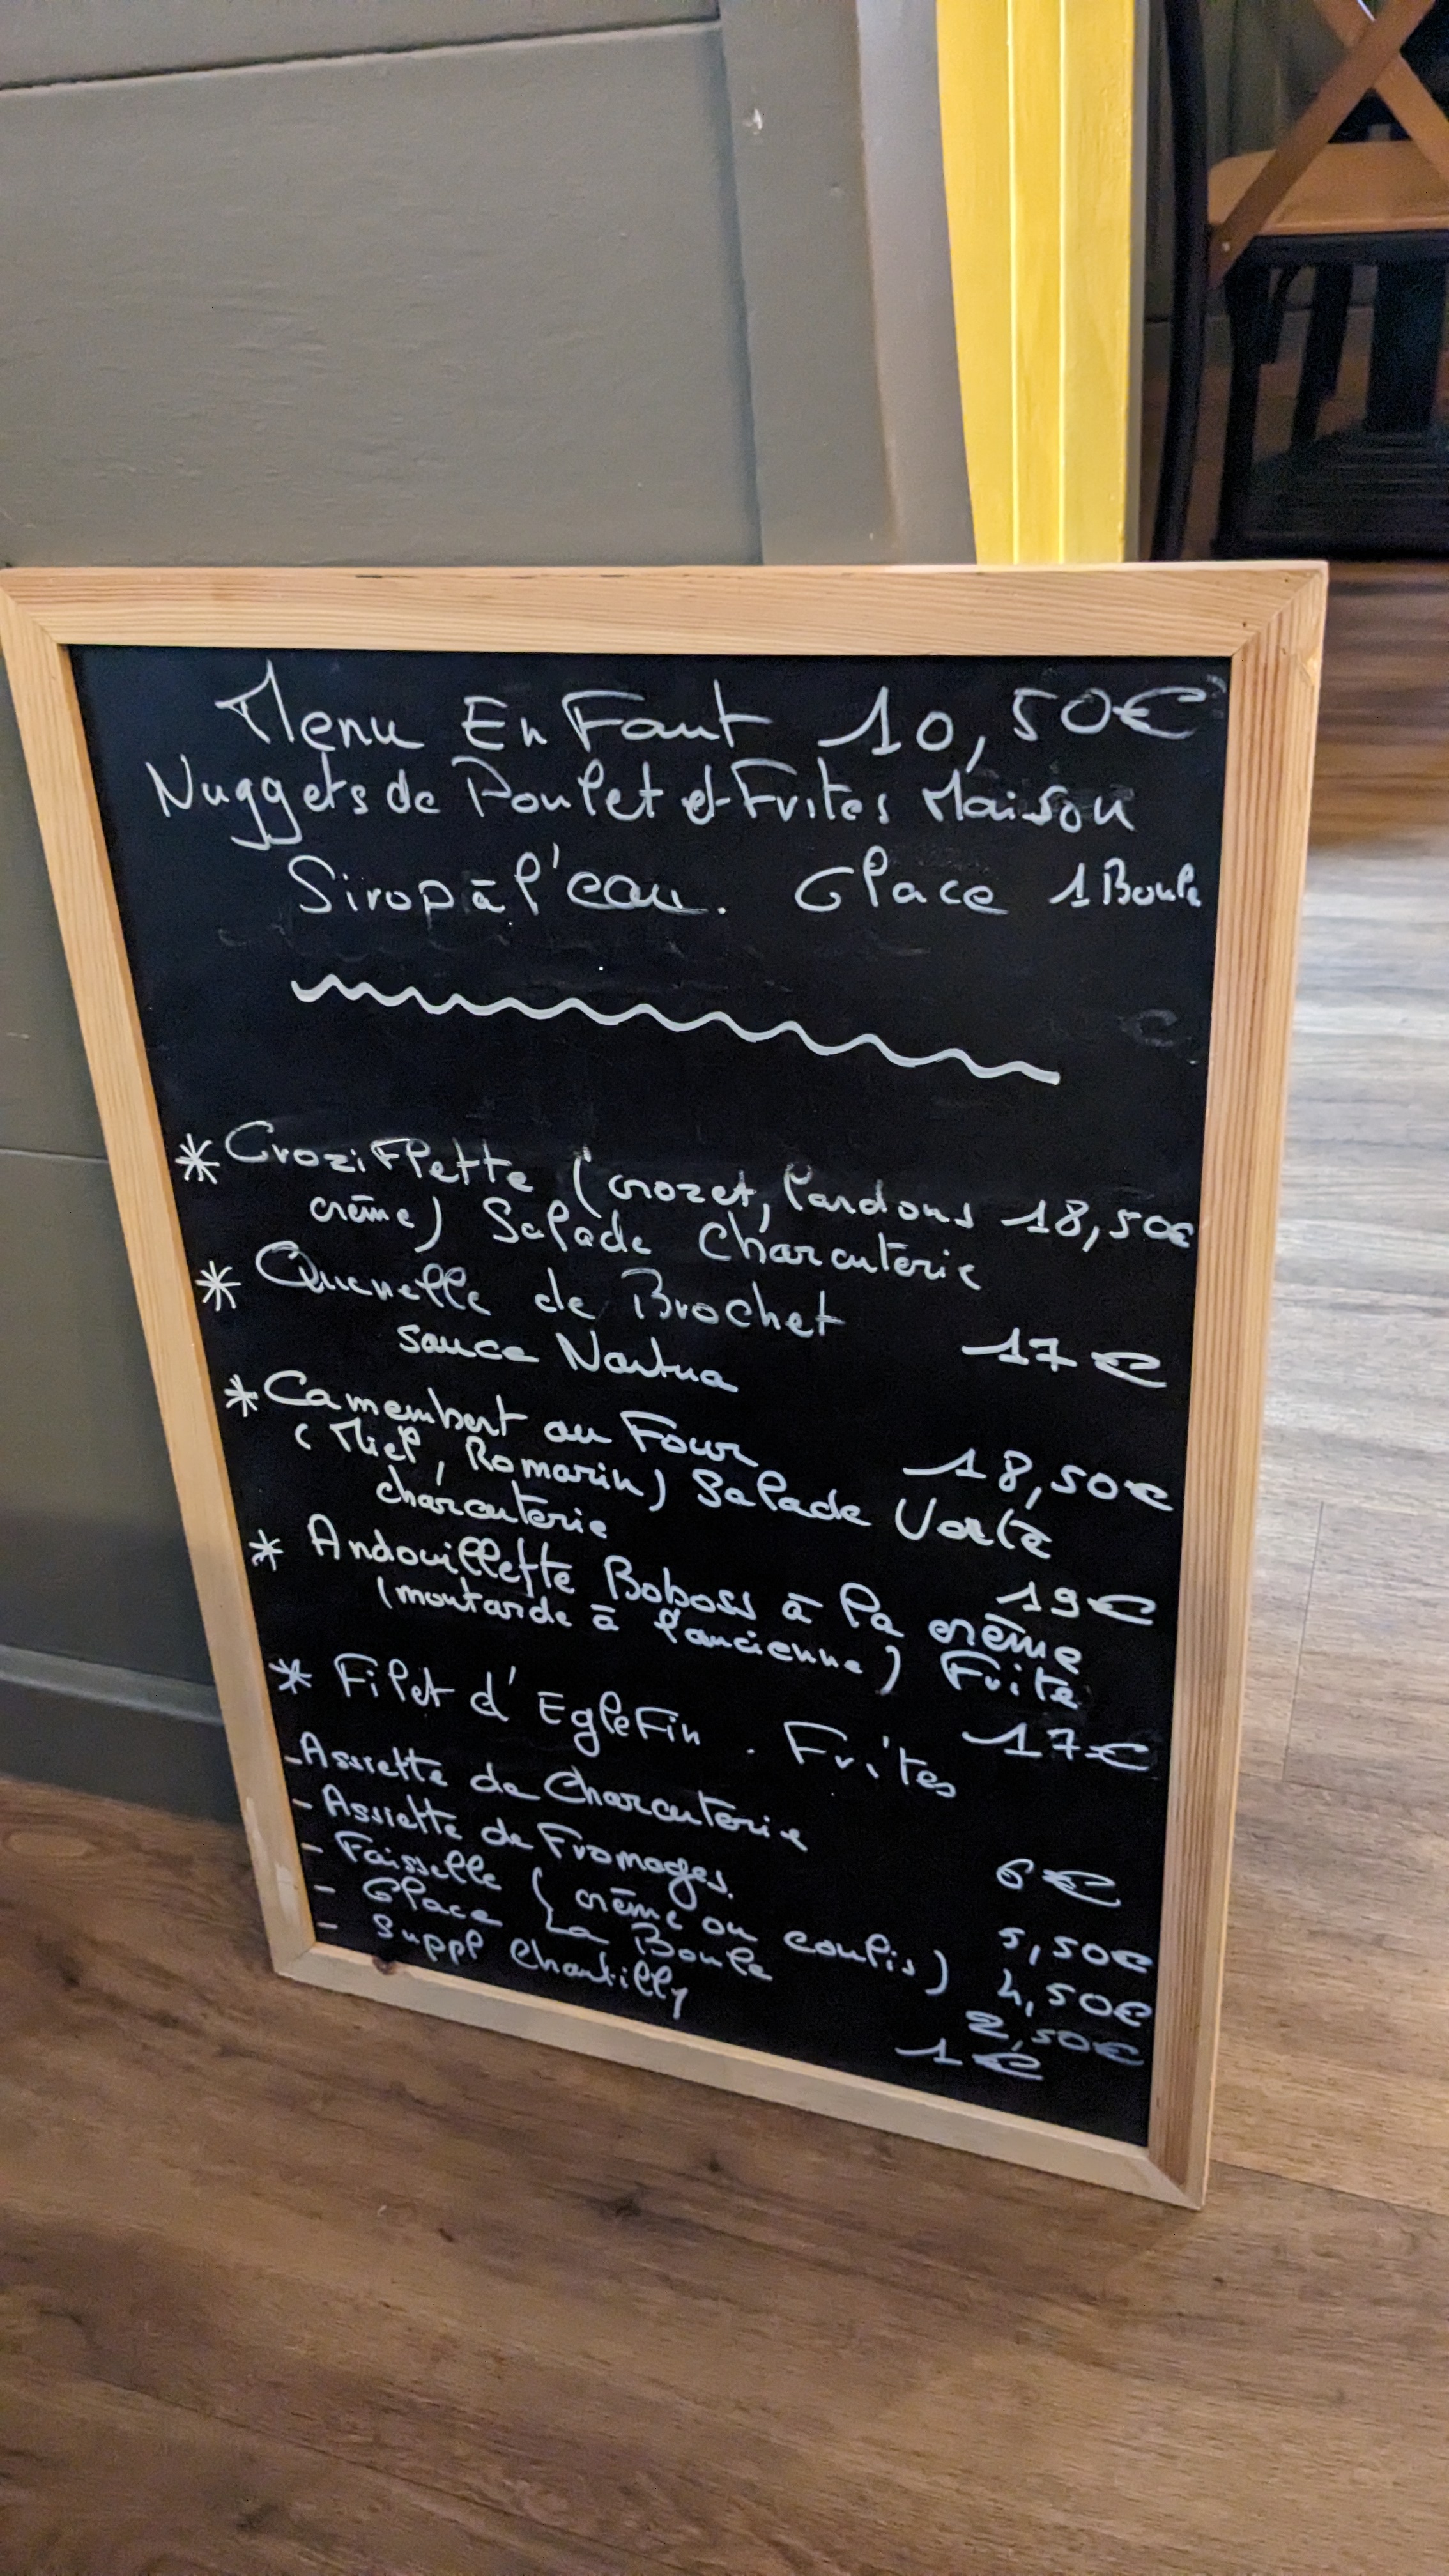 Menu Enfant 10,50€
Nuggets de Poulet et Frites Maison
Sirop à l'eau. Glace 1 Boule
* Croziflette (crozet, lardons 18,50€
crème) Salade Charcuterie
* Quenelle de Brochet
sauce Nantua 17€
* Camembert au Four 18,50€
(Miel, Romarin) Salade Verte
charcuterie
* Andouillette Boboss à la crème 19€
(moutarde à l'ancienne) Frite
* Filet d'Eglefin. Frites 17€
- Assiette de Charcuterie 6€
- Assiette de Fromages. 5,50€
- Faisselle (crème ou coulis) 4,50€
- Glace La Boule 2,50€
- Suppl Chantilly 1€